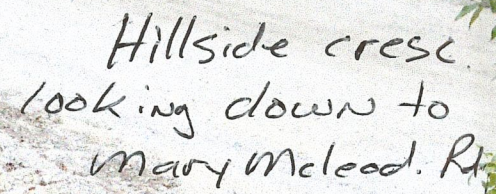 Hillside cresc.
looking down to
Mary Mcleod. Rd.